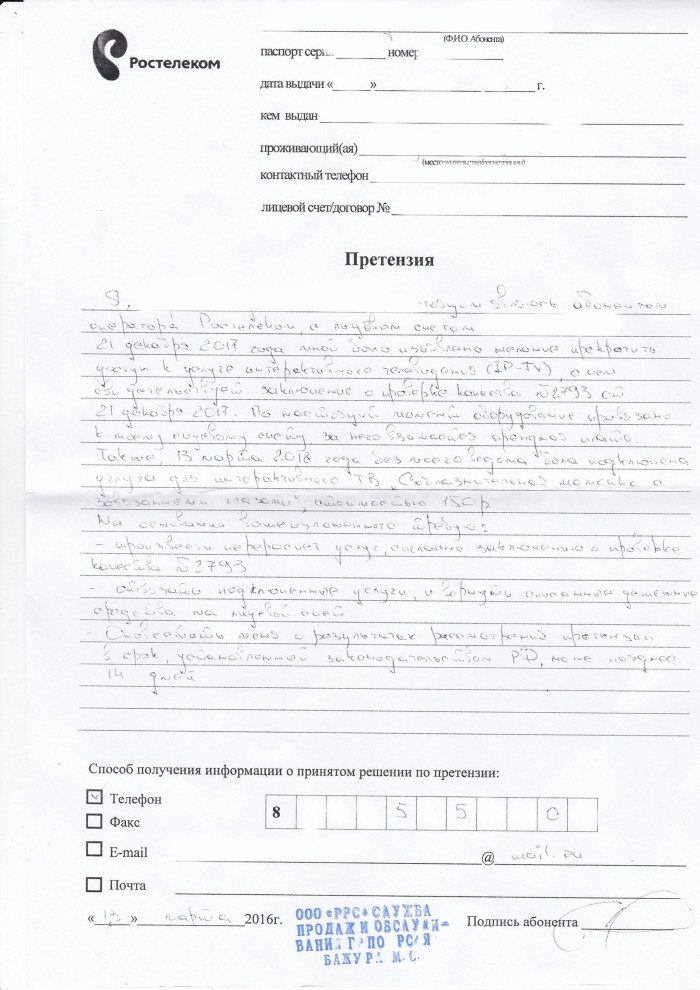 Ростелеком
(Ф.И.О. Абонента)
паспорт сери номер
дата выдачи «______»____________________ г.
кем выдан
проживающий(ая)
контактный телефон
лицевой счет/договор №
Претензия
Я, являюсь абонентом
оператора Ростелеком, с лицевым счетом
21 декабря 2017 года мной было изъявлено желание прекратить
доступ к услуге интерактивного телевидения (IP-TV), о чем
свидетельствует заключение о проверке качества №2793 от
21 декабря 2017. По настоящий момент оборудование привязано
к моему лицевому счету, за него взимается арендная плата.
Также, 13 марта 2018 года без моего ведома была подключена
услуга для интерактивного ТВ "Соблазнительная мамочка с
завязанными глазами", стоимостью 150р
На основании вышеизложенного требую:
- произвести перерасчет услуг, согласно заключению о проверке
качества №2793
- отвязать подключенные услуги, и вернуть списанные денежные
средства на лицевой счет.
- Оповестить меня о результатах рассмотрения претензии
в срок, установленный законодательством РФ, но не позднее
14 дней
Способ получения информации о принятом решении по претензии:
Телефон
8 5 5 0
Факс
E-mail @ mail.ru
Почта
« 13 » марта 2016г.
ООО «РРС» СЛУЖБА
ПРОДАЖ И ОБСЛУЖИ-
ВАНИ ПО
БАЖУРА М.С.
Подпись абонента